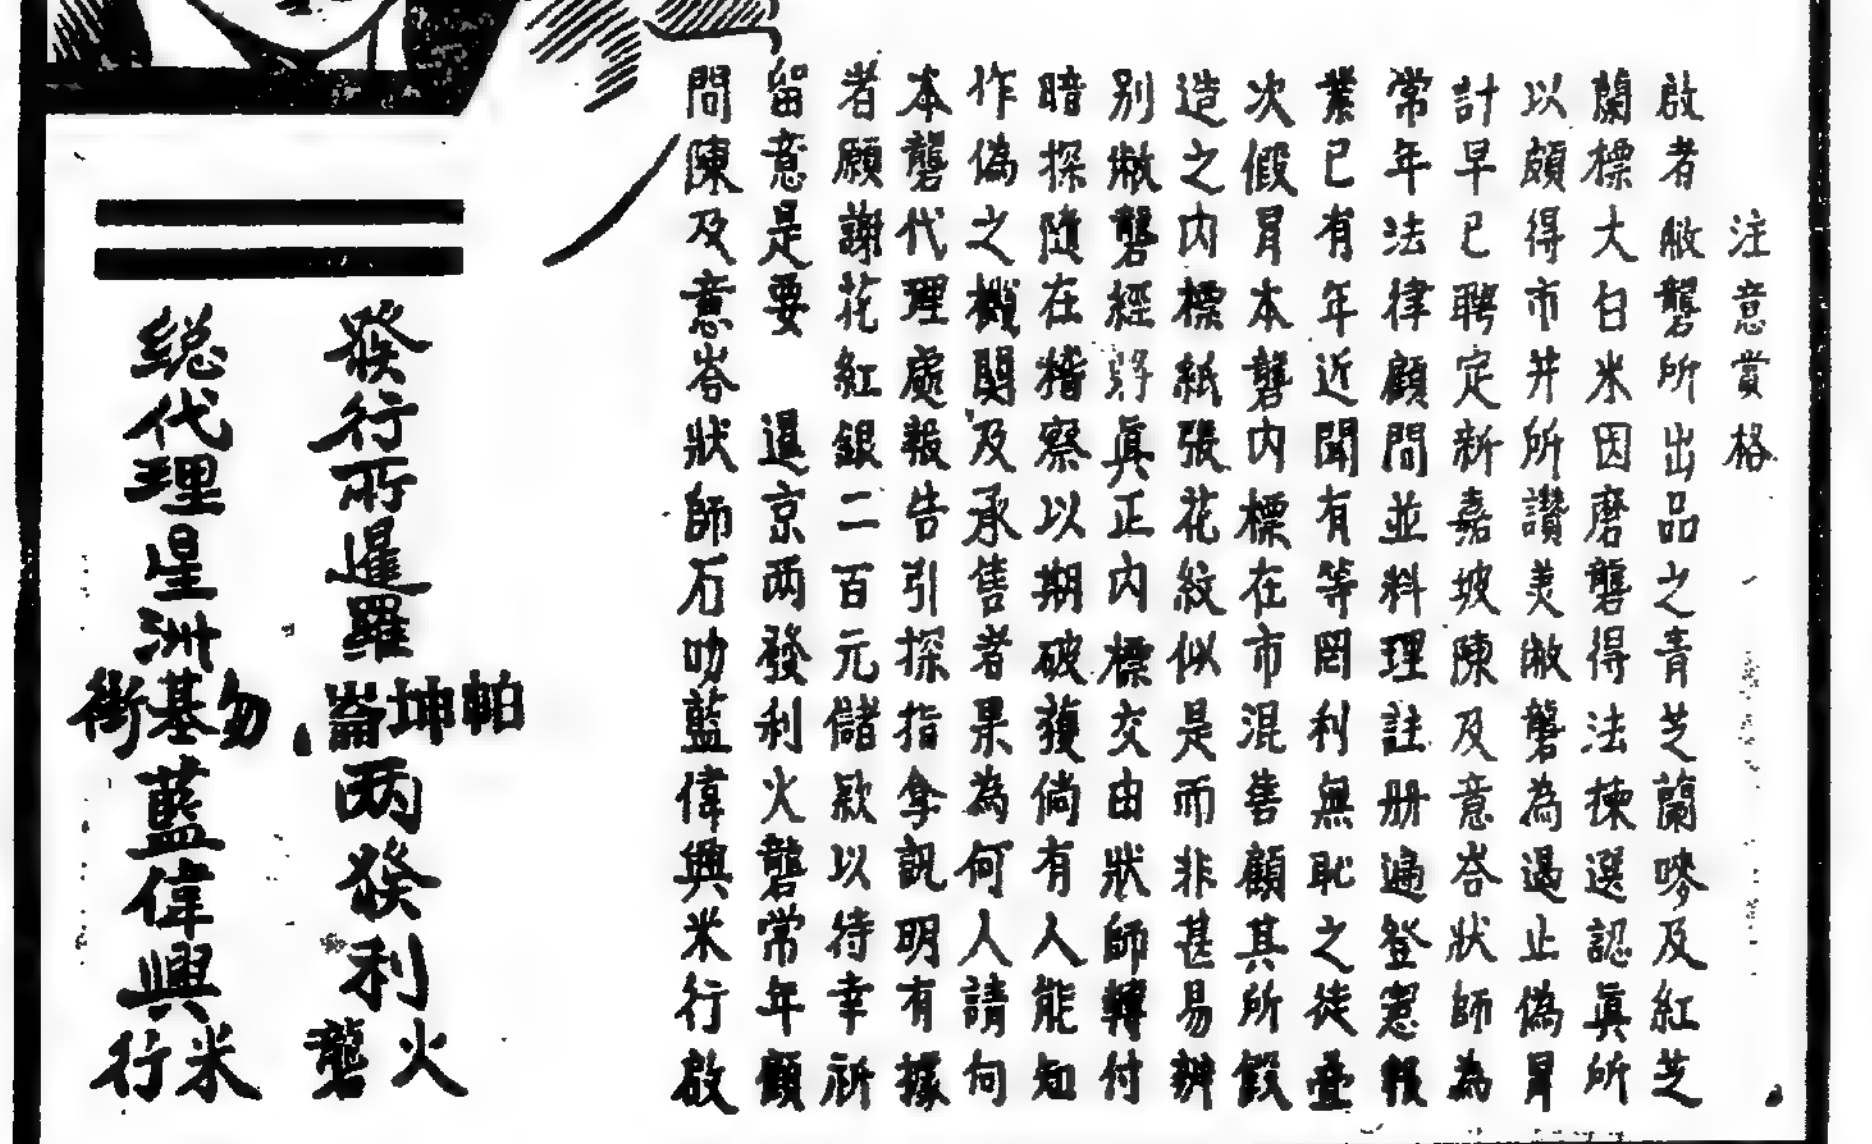 注意賞格
啟者敝礱所出品之青芝蘭嘜及紅芝
蘭標大白米因磨礱得法揀選認眞所
以頗得市井所讚美敝礱為遏止偽冐
計早已聘定新嘉坡陳及意峇狀師為
常年法律顧問並料理註册遍登憲報
業已有年近聞有等罔利無恥之徒疊
次假冐本礱內標在市混售顧其所假
造之內標紙張花紋似是而非甚易辨
别敝礱經將眞正內標交由狀師轉付
暗探隨在稽察以期破獲倘有人能知
作偽之機関及承售者果為何人請向
本礱代理處報告引探指拿訊明有據
者願謝花紅銀二百元儲欵以待幸祈
留意是要 暹京両發利火礱常年顧
問陳及意峇狀師石叻藍偉興米行啟
發行所暹羅帕坤崙両發利火礱
総代理星洲勿基街藍偉興米行